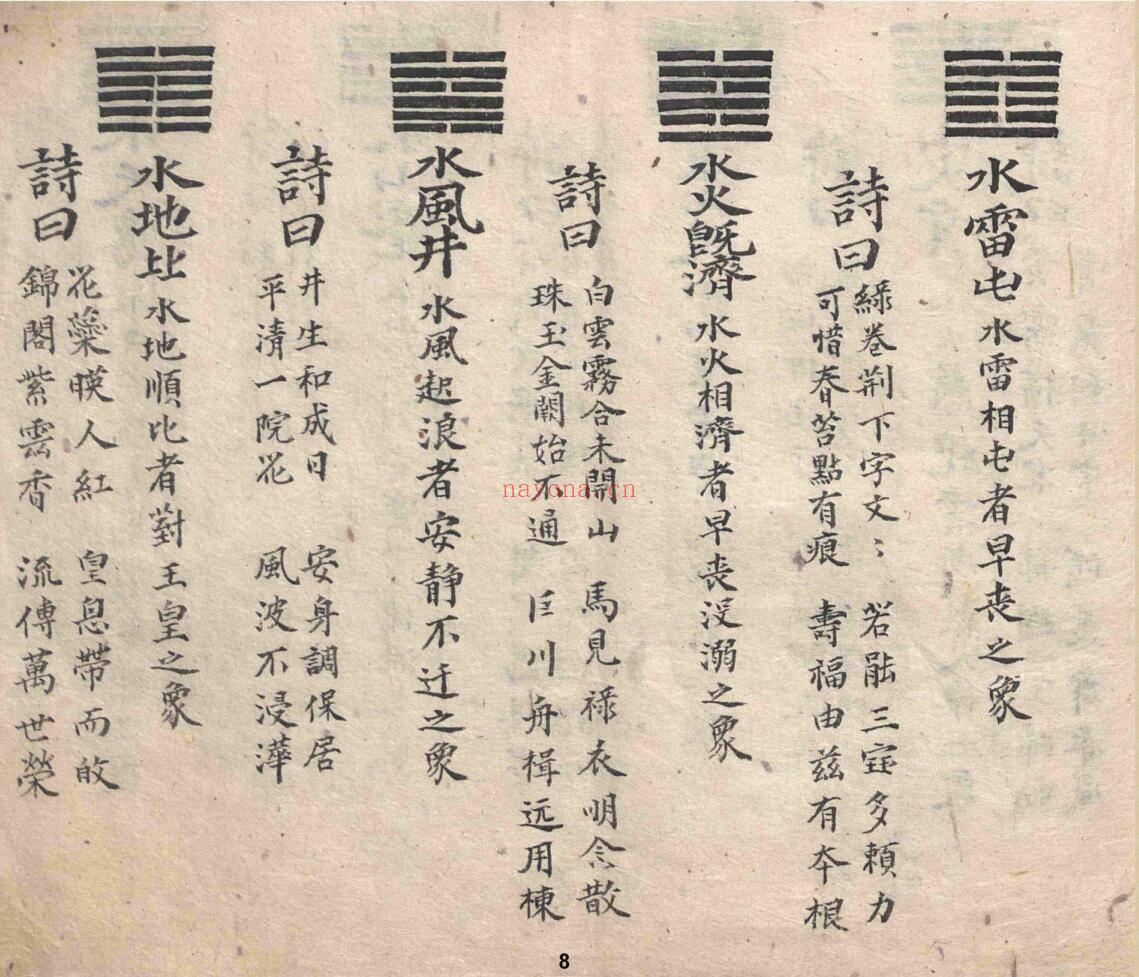 水雷屯 水雷相屯者早丧之象
詩曰
綠卷荆下字文〻 若能三宝多賴力
可惜春苔點有痕 壽福由兹有本根
水火旣濟 水火相濟者早丧没溺之象
詩曰
白雲霧合未開山 馬見禄衣明念散
珠玉金闕始不通 巨川舟楫远用棟
水風井 水風起浪者安静不迁之象
詩曰
井生和成日 安身調保居
平清一院花 風波不浸
水地比 水地順比者對王皇之象
詩曰
花蘂暎人紅 皇恩帶而
錦閣紫雲香 流傳萬世榮
nayona.cn
8